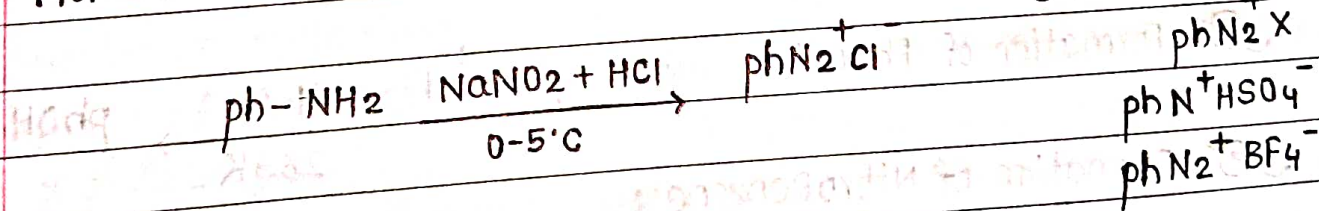 ph-NH2 NaNO2 + HCl 0-5°C phN2⁺Cl⁻
phN2⁺X⁻
phN⁺HSO4⁻
phN2⁺BF4⁻